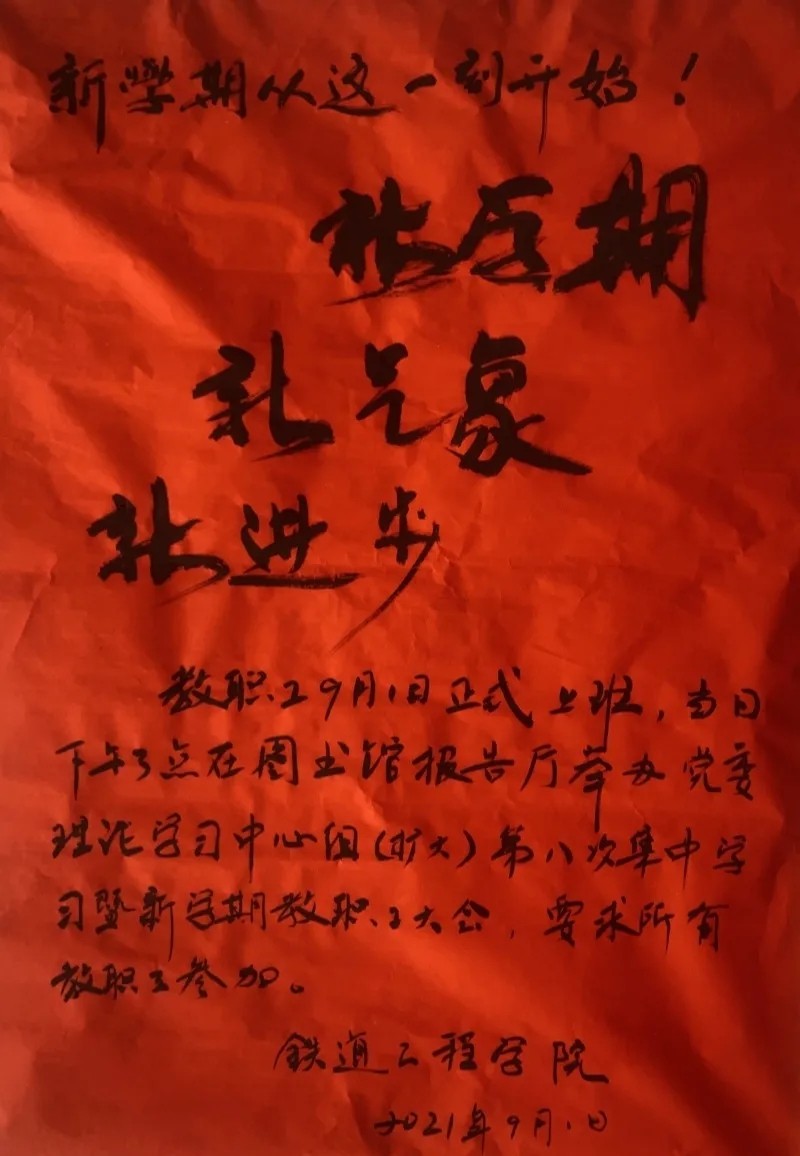 新学期从这一刻开始！
新学期
新气象
新进步
教职工9月1日正式上班，当日
下午3点在图书馆报告厅举办党委
理论学习中心组(扩大)第八次集中学
习暨新学期教职工大会，要求所有
教职工参加。
鉄道工程学院
2021年9月1日